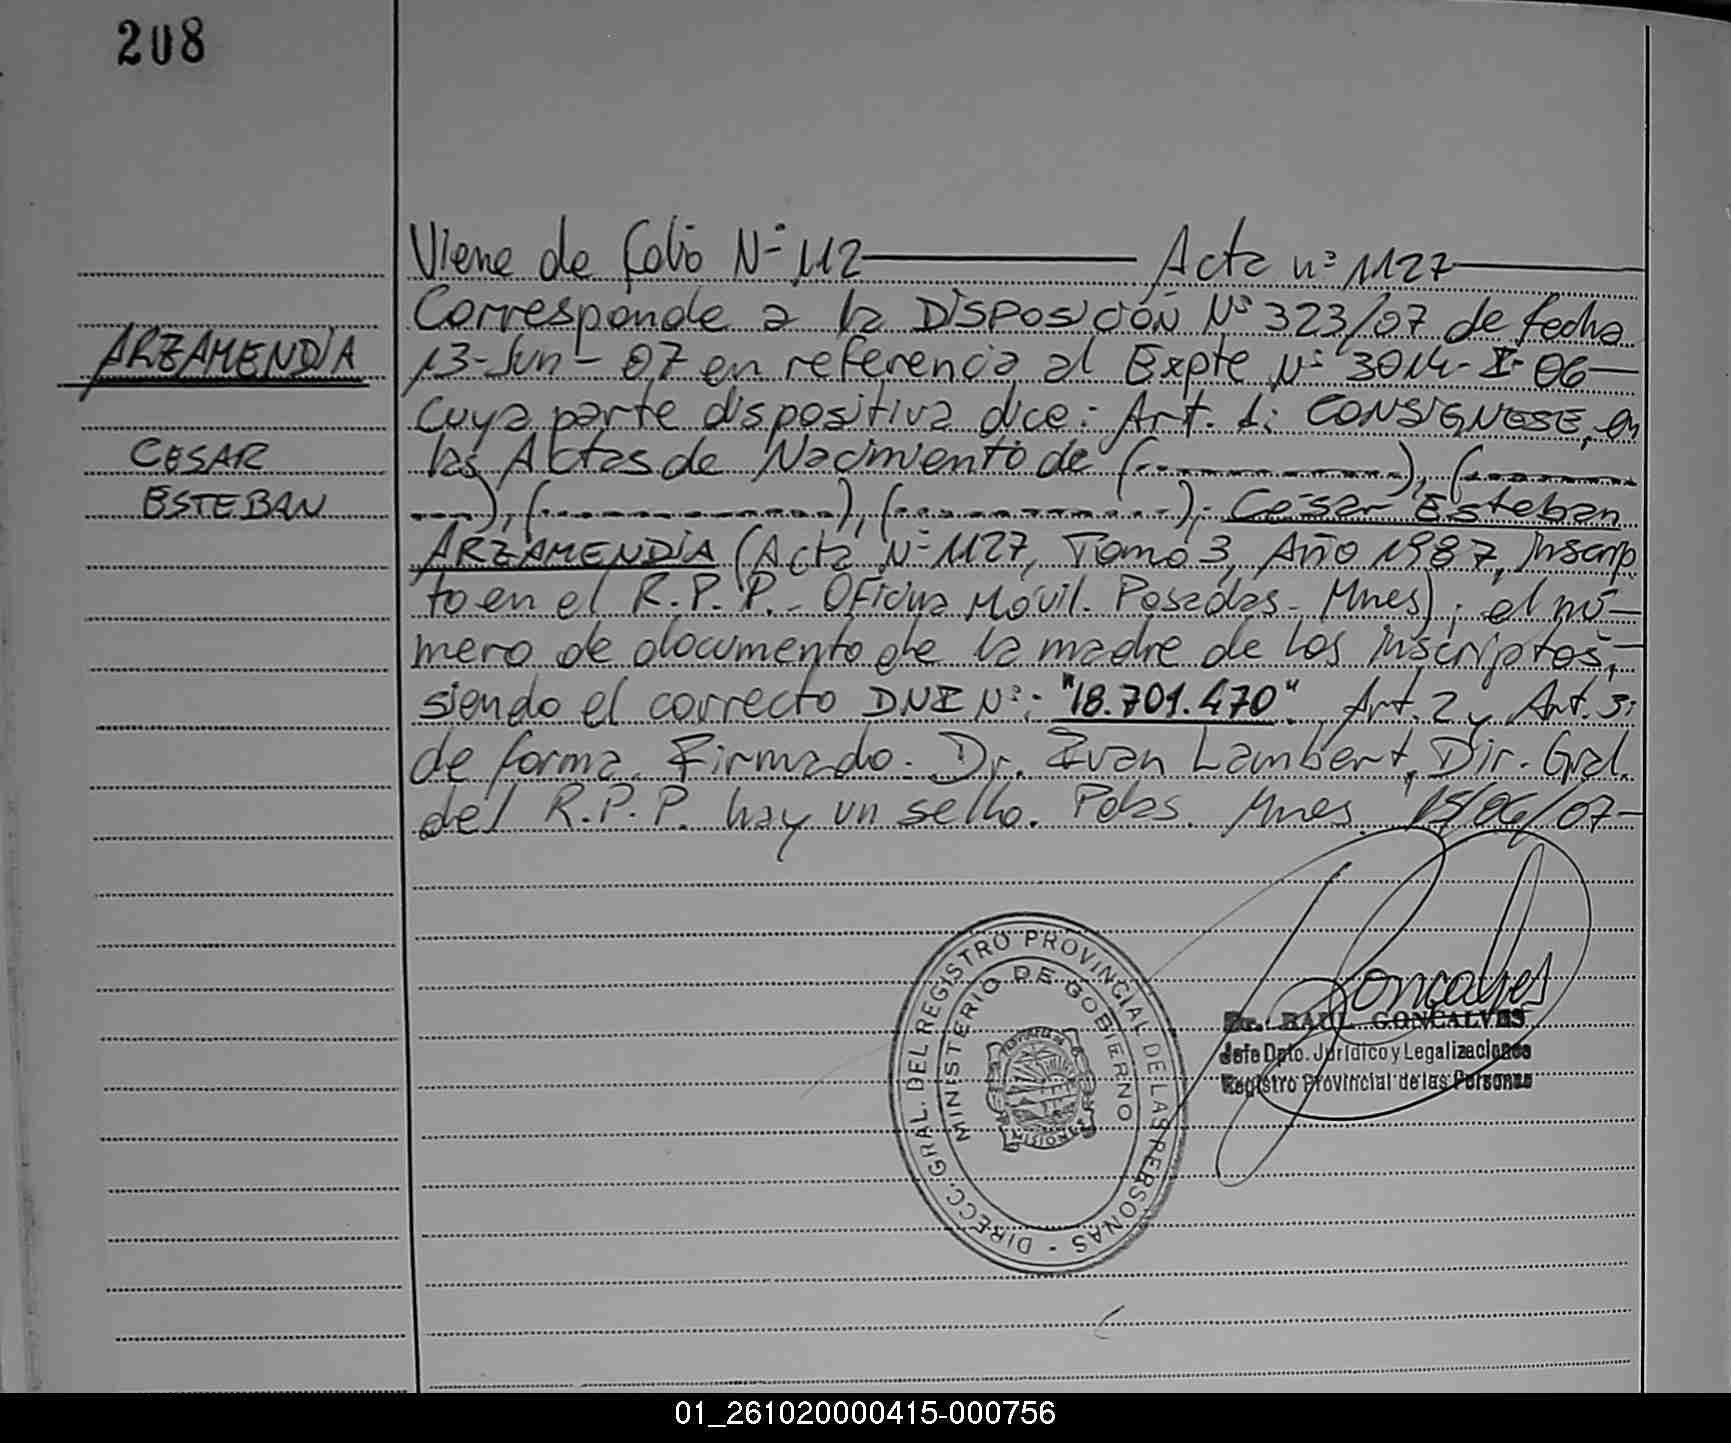 208
Viene de folio Nº 112 — Acta nº 1127 —
Corresponde a la DISPOSICIÓN Nº 323/07 de fecha
ARZAMENDIA
13-Jun-07 en referencia al Expte Nº 3014-I-06 —
cuya parte dispositiva dice: Art. 1: CONSIGNESE, en
CESAR
las Actas de Nacimiento de (------------), (--------
ESTEBAN
----), (--------------), (------------); Cesar Esteban
ARZAMENDIA (Acta Nº 1127, Tomo 3, Año 1987, Inscrip
to en el R.P.P.- Oficina Móvil. Posadas- Mnes); el nú-
mero de documento de la madre de los inscriptos,-
siendo el correcto DNI Nº: "18.701.470". Art. 2 y Art. 3:
de forma. Firmado. Dr. Ivan Lambert, Dir. Gral.
del R.P.P. hay un sello. Pdas. Mnes. 15/06/07-
DIRECC. GRAL. DEL REGISTRO PROVINCIAL DE LAS PERSONAS -
MINISTERIO DE GOBIERNO
MISIONES
Goncalves
Dr. RAUL GONCALVES
Jefe Dpto. Jurídico y Legalizaciones
Registro Provincial de las Personas
01_261020000415-000756